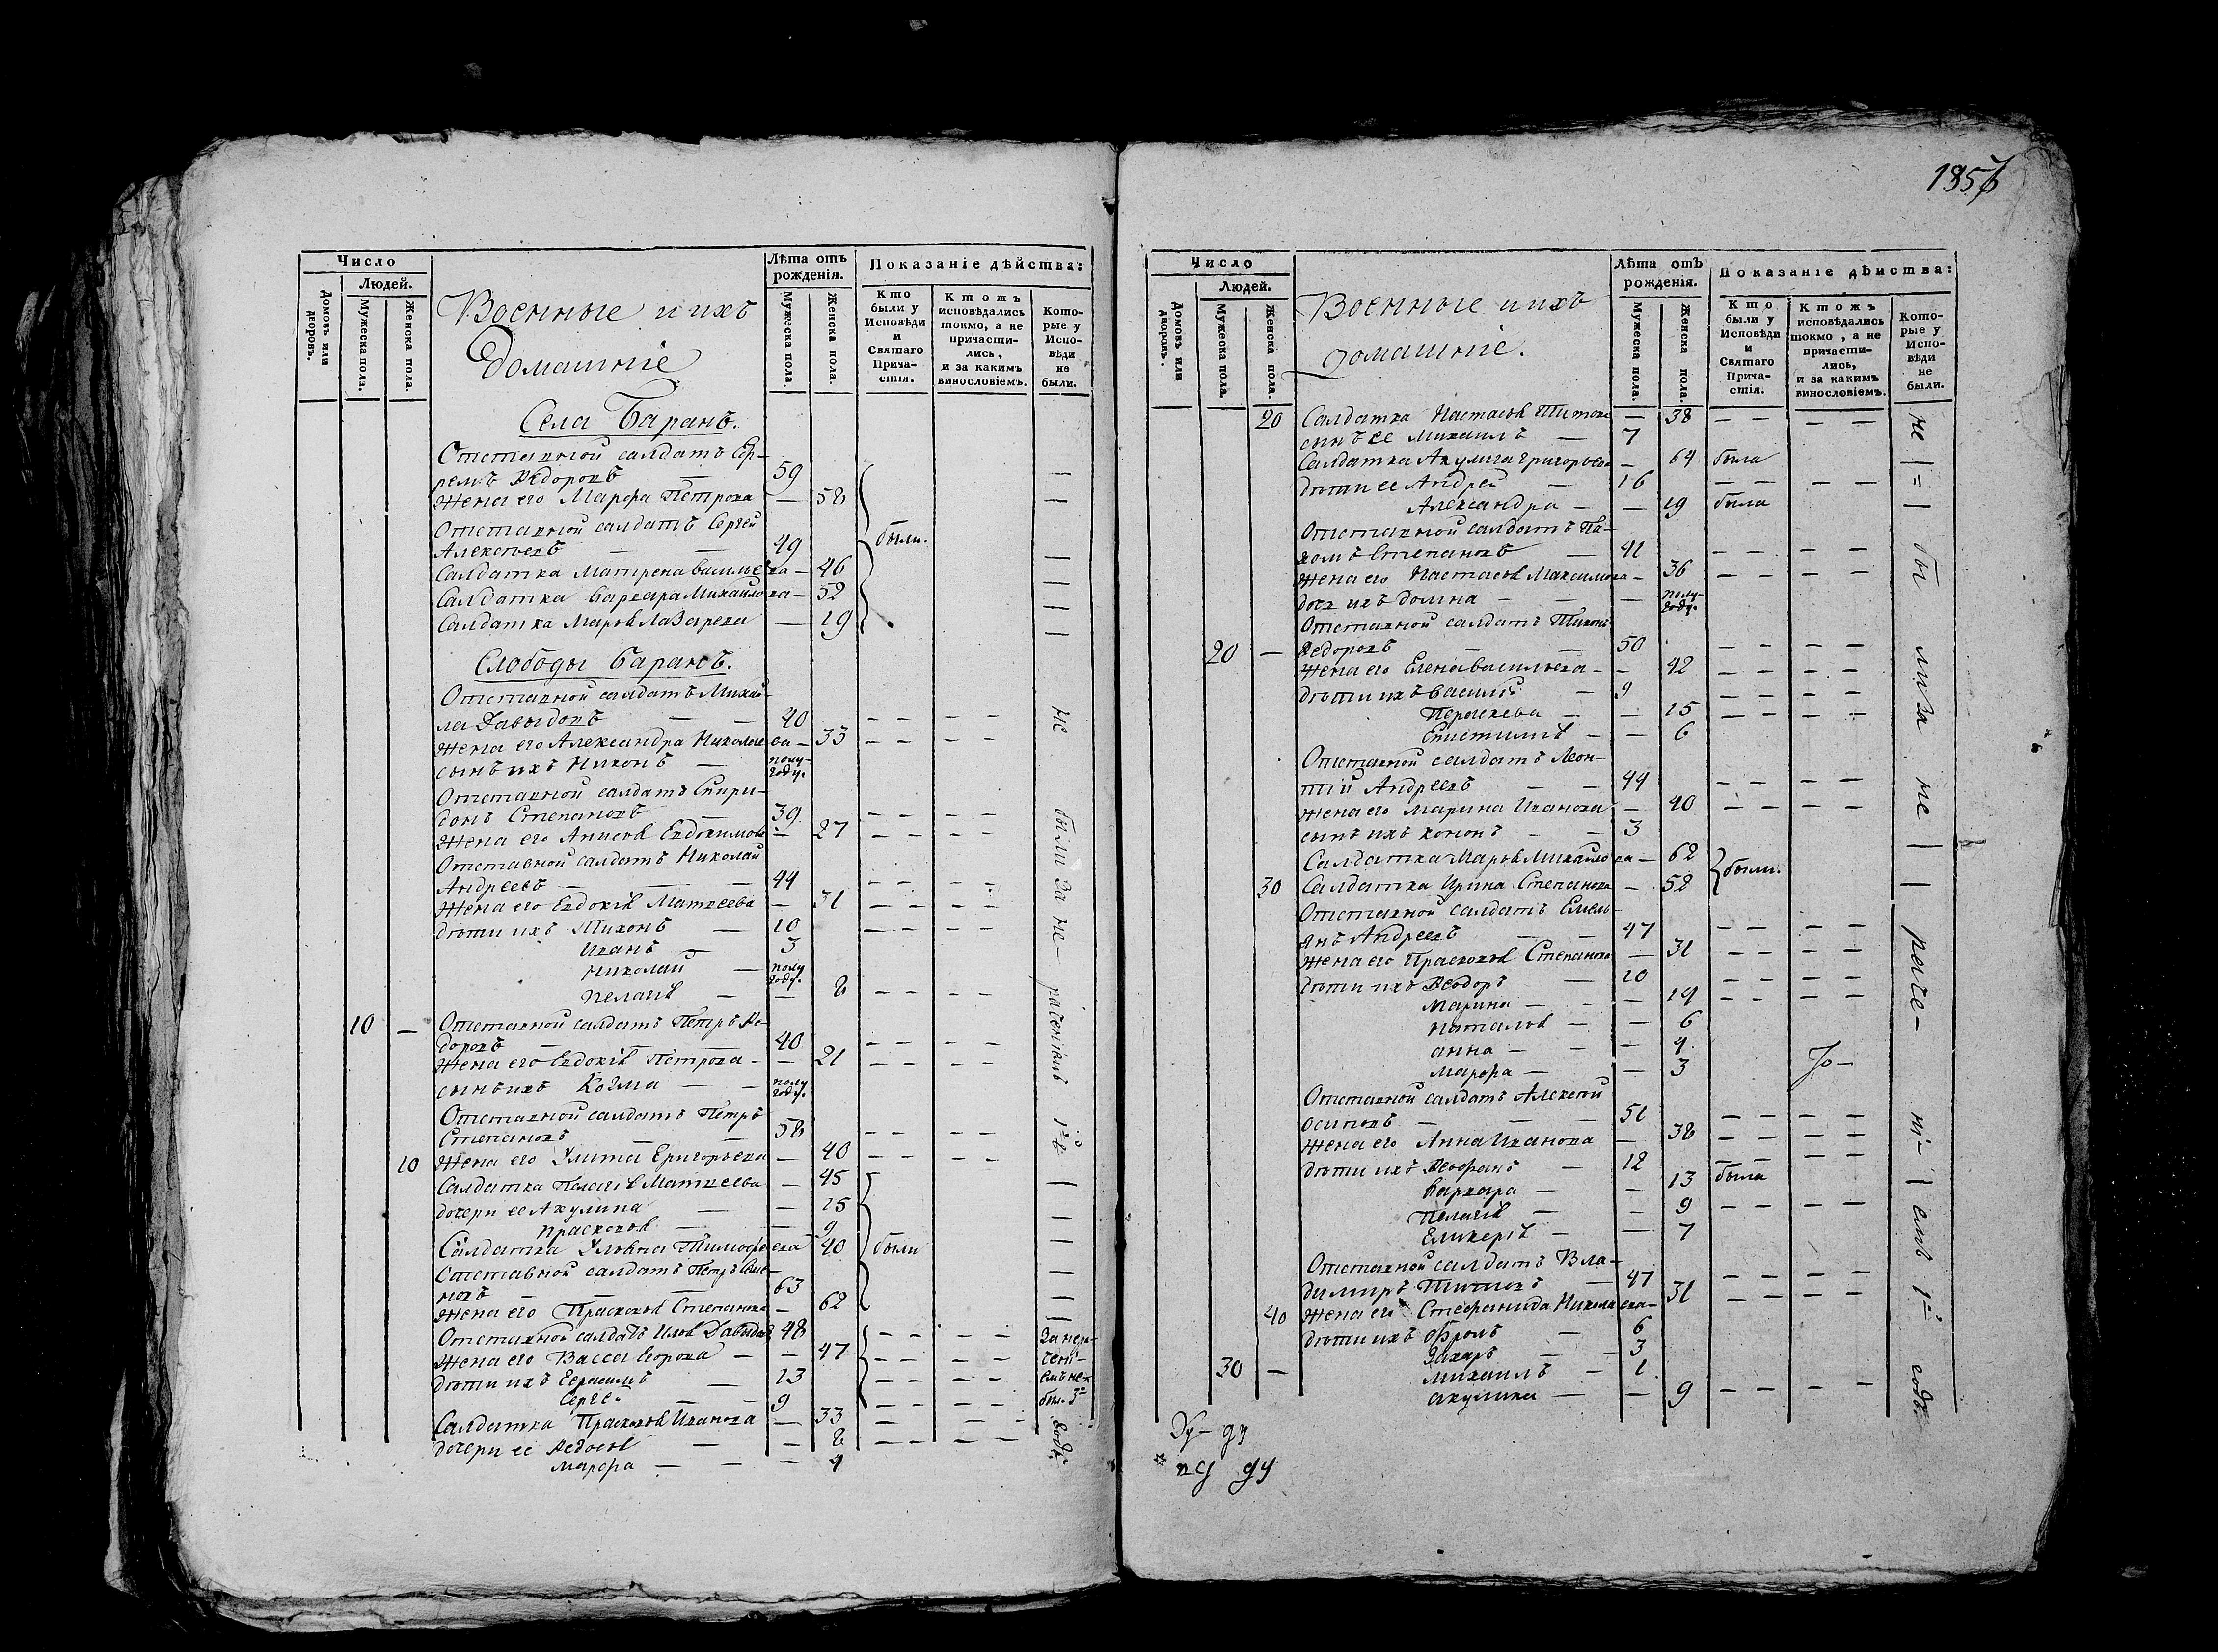 Число
Людей.
Домовъ или дворовъ.
Мужеска пола.
Женска пола.
Военные и ихъ
Домашніе
Лѣта отъ рожденія.
Мужеска пола.
Женска пола.
Показаніе дѣйства:
Кто были у Исповѣди и Святаго Прича-стія.
Ктожъ исповѣдались токмо, а не причасти-лись, и за какимъ винословіемъ.
Кото-рые у Испо-вѣди не были.
Села Баранъ.
Отставной салдатъ Еф-
ремъ Ѳедоровъ — 59 —
Жена его Марфа Петрова — 58 —
Отставной салдатъ Сергей
Алексѣевъ — — 49 были.
Салдатка Матрена Василіева — 46 —
Салдатка Варвара Михайлова — 52 —
Салдатка Марѳа Лазарева — 19 —
Слободы Баранъ.
Отставной салдатъ Михай-
ла Давыдовъ — — 40 — — — —
Жена его Александра Николаева — 33 — — — —
сынъ ихъ Никонъ — полу-году.
Отставной салдатъ Спири-
донъ Степановъ — 39. — — — —
Жена его Анисья Евдокимова — 27 — — — —
Отставной салдатъ Николай
Андреевъ — — — 44 — — — —
Жена его Евдокія Матвеева — 31 — — — —
дѣти ихъ Тихонъ — 10 — — — —
Иванъ — 3
Николай — полу году.
Пелагія — — 8 — — — —
10 — Отставной салдатъ Петръ Ѳе-
доровъ — — — 40 — — — —
Жена его Евдокія Петрова — — 21 — — — —
сынъ ихъ Козма — — полу году.
Отставной салдатъ Петръ
Степановъ — — 58 — — — —
10 Жена его Улита Григорьева — 40 — — — —
Салдатка Пелагія Матвеева — 45 —
дочери ее Акулина — — 15 —
Прасковья — — 9 —
Салдатка Ульяна Тимофеева 40 были —
Отставной салдатъ Петръ Семе-
новъ — — — 63 —
Жена его Прасковья Степанова — 62 —
Отставной салдатъ Илья Давыдовъ 48 — — — —
Жена его Васса Егорова — — 47 — — — —
дѣти ихъ Герасимъ — 13 — — — —
Сергей — — 9 — — — —
Салдатка Прасковья Иванова — 33 — — —
дочери ее Ѳедосья — — 8 — — — —
Марфа — — — 4
не были за не-раченіемъ 1й
За нера-
чені-
емъ не
были 3
годъ.
Число
Людей.
Домовъ или дворовъ.
Мужеска пола.
Женска пола.
Военные и ихъ
домашніе.
Лѣта отъ рожденія.
Мужеска пола.
Женска пола.
Показаніе дѣйства:
Кто были у Исповѣди и Святаго Прича-стія.
Ктожъ исповѣдались токмо, а не причасти-лись, и за какимъ винословіемъ.
Кото-рые у Испо-вѣди не были.
20 Салдатка Настасья Титова — 38 — — — —
сынъ ее Михаилъ — 7
Салдатка Акулина Григорьева — 64 была
дѣти ее Андрей — 16 — — — —
Александра — — 19 была
Отставной салдатъ Па-
хомъ Степановъ — 41 — — — —
Жена его Настасья Максимова — 36 — — — —
дочь ихъ Домна — — — полу-году.
Отставной салдатъ Тихонъ
20 — Ѳедоровъ — — 50 — — — —
Жена его Елена Васильева — — 42 — — — —
дѣти ихъ Василій — 9 — — — —
Параскева — — 15 — — — —
Епистимія — — 6
Отставной салдатъ Леон-
тій Андреевъ — — 44 — — — —
Жена его Марина Иванова — 40 — — — —
сынъ ихъ Кононъ — — 3
Салдатка Марѳа Михайлова — 62 были.
30 Салдатка Ирина Степанова — 52
Отставной салдатъ Емель-
янъ Андреевъ — — 47 — — — —
Жена его Прасковья Степанова — 31 — — — —
дѣти ихъ Ѳеодоръ — 10 — — — —
Марина — — — 14 — — — —
Наталья — — 6
Анна — — — 4
Марфа — — 3
Отставной салдатъ Алексѣй
Осиповъ — — — 51 — — — —
Жена его Анна Иванова — 38 — — — —
дѣти ихъ Ѳеофанъ — 12 — — — —
Варвара — — 13 была
Пелагія — — 9 — — — —
Гликерія — — 7
Отставной салдатъ Вла-
димиръ Титовъ — 47 — — — —
40 Жена его Стефанида Николаева — 31 — — — —
дѣти ихъ Фролъ — 6
Захаръ — — 3
30 — Михаилъ — 1
Акулина — — 9 — — — —
не бы ли за не раче- ні- емъ 1й годъ.